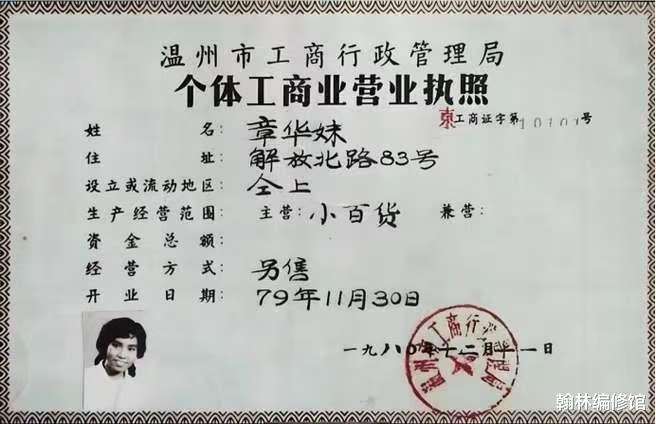 温州市工商行政管理局
个体工商业营业执照
东工商证字第10101号
姓名：章华妹
住址：解放北路83号
设立或流动地区：仝上
生产经营范围：主营：小百货 兼营：
资金总额：
经营方式：另售
开业日期：79年11月30日
一九八〇年十二月十一日
温州市工商行政管理局
翰林编修馆